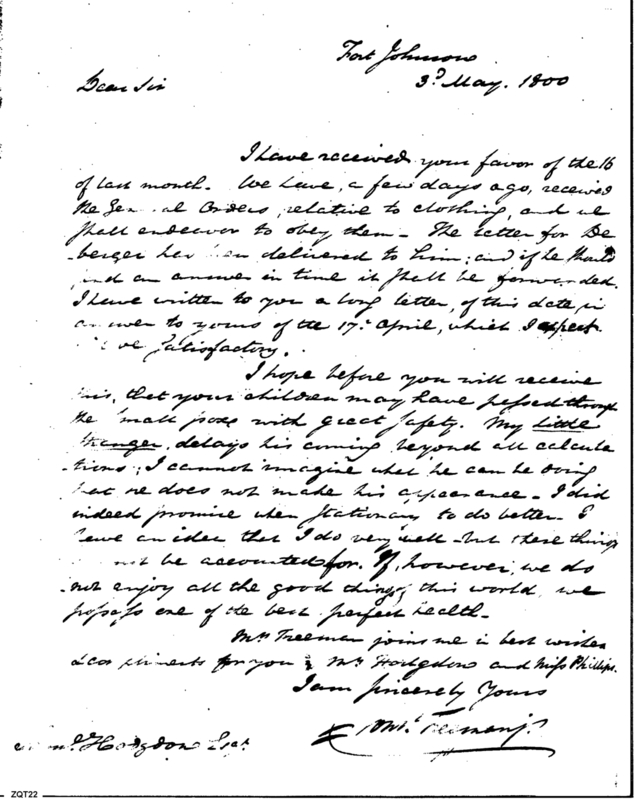 Fort Johnson
3d May. 1800
Dear Sir
I have received your favor of the 16
of last month. We have, a few days ago, received
the Gen al Orders, relative to clothing, and we
shall endeavor to obey them - The letter for De
berger has en delivered to him; and if he should
nd an answer in time it shall be forwarded.
I have written to you a long letter, of this date, in
answer to yours of the 17th April, which I expect
ve Satisfactory.
I hope before you will receive
this, that your children may have passed through
the small poxe with great safety. My little
stranger, delays his coming beyond all calcula
tions; I cannot imagine what he can be doing
that he does not make his appearance - I did
indeed promise when stationary to do better - I
have an idea that I do very well - but these things
not be accounted for. If, however, we do
not enjoy all the good things of this world, we
possess one of the best perfect health -
Mrs Freeman joins me in best wishes
& com pliments for you & Mrs Hodgdon and Miss Phillips.
I am Sincerely Yours
Const. Freeman Jr.
ml. Hodgdon Esqr.
ZQT22